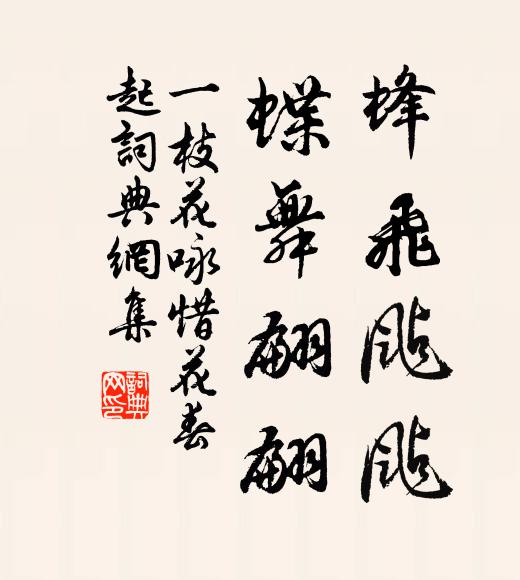 蜂飛颭颭
蝶舞翩翩
一枝花咏惜花春
起詞典網集
詞典
网印